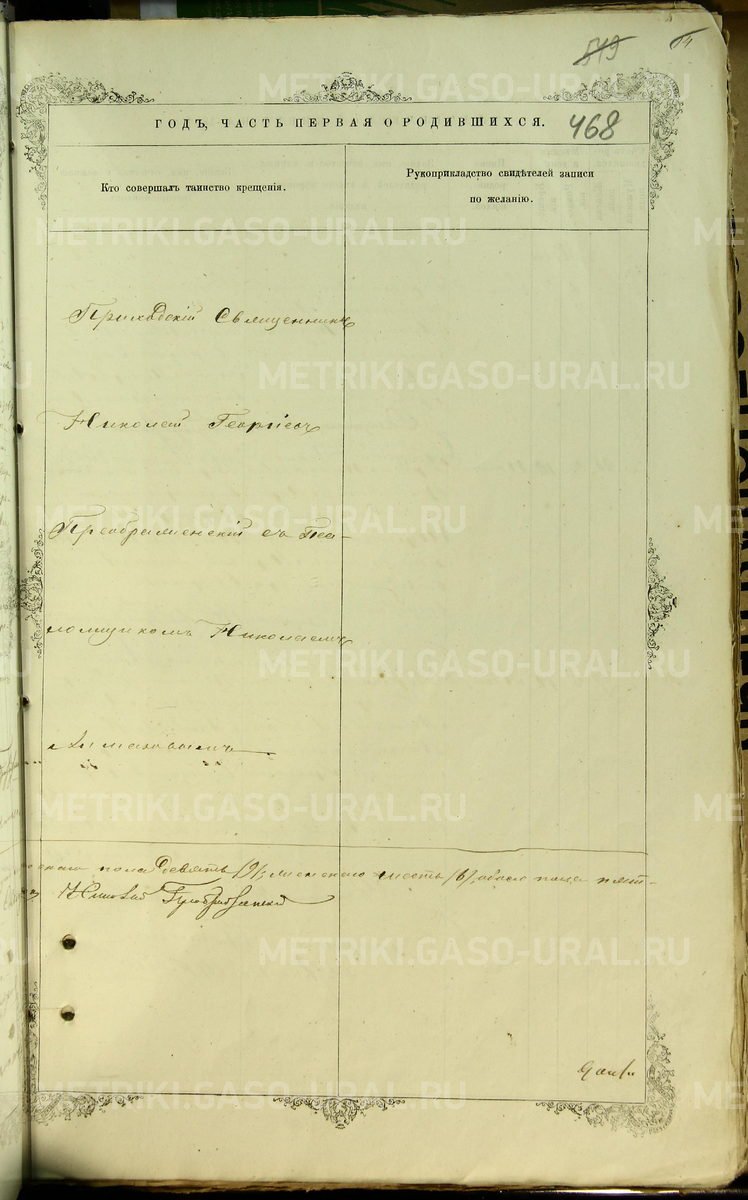 519
468
ГОДЪ, ЧАСТЬ ПЕРВАЯ О РОДИВШИХСЯ.
Кто совершалъ таинство крещенія.
Рукоприкладство свидѣтелей записи
по желанію.
Приходскій Священникъ
Николай Георгіевъ
Преображенскій съ Пса-
ломщикомъ Николаемъ
пола девять /9/, женскаго шесть /6/, обоего пола пят-
Николай Преображенскій
METRIKI.GASO-URAL.RU